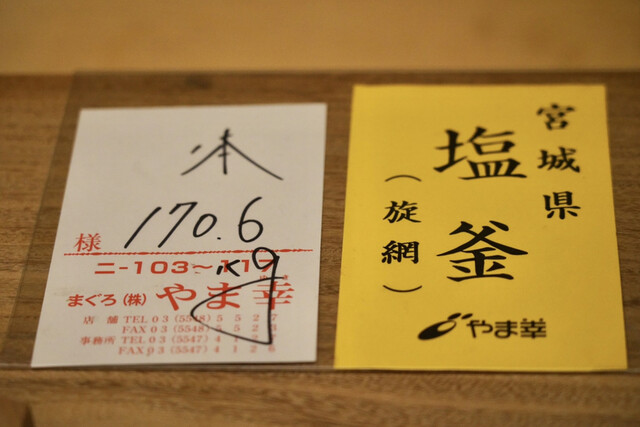 170.6
様
K9
ニ-103〜117
まぐろ(株)やま幸
店舗 TEL 03 (5548) 5527
FAX 03 (5548) 5523
事務所 TEL 03 (5547) 4128
FAX 03 (5547) 4126
宮城県
塩釜
(旋網)
やま幸